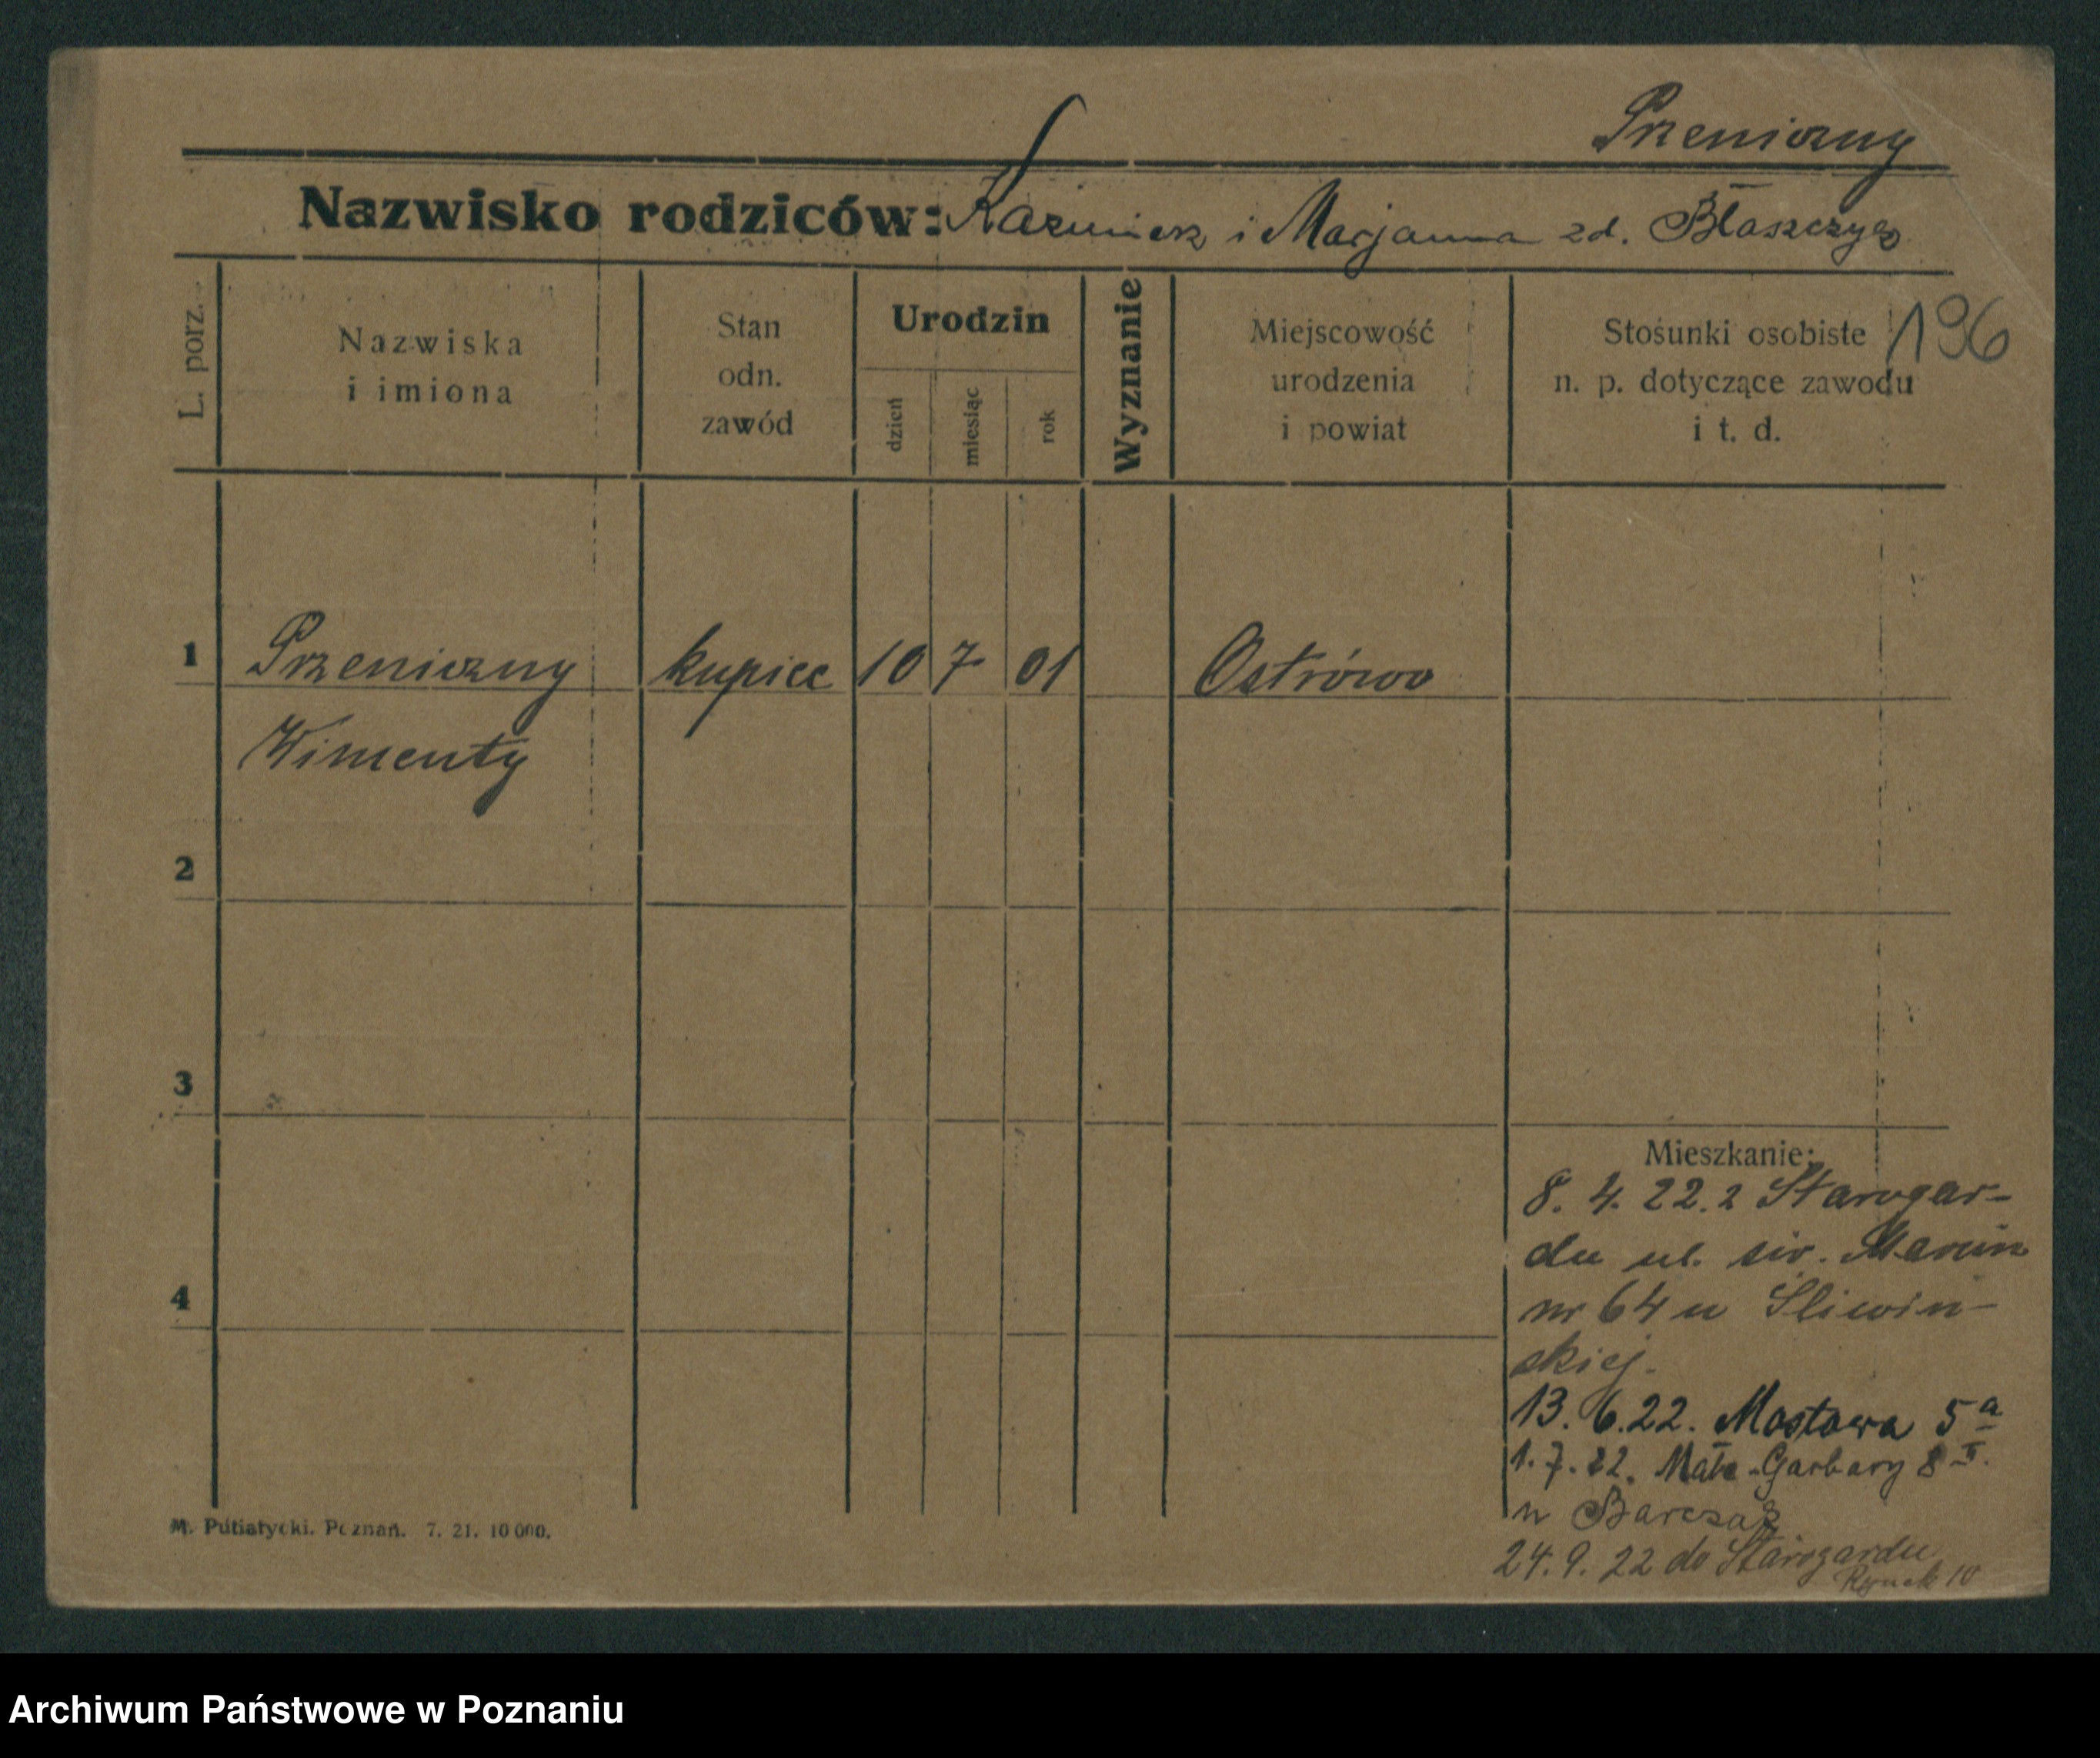 Przeniczny
Nazwisko rodziców: Kazimierz i Marjanna zd. Błaszczyk
196
L. porz.
Nazwiska
i imiona
Stan
odn.
zawód
Urodzin
dzień
miesiąc
rok
Wyznanie
Miejscowość
urodzenia
i powiat
Stosunki osobiste
n. p. dotyczące zawodu
i t. d.
1 Przeniczny kupiec 10 7 01 Ostrówo
Wimenty
2
3
4
Mieszkanie:
8. 4. 22. z Starogar-
du ul. św. Marcin
nr 64 u Śliwiń-
skiej.
13. 6. 22. Mostowa 5 a
1. 7. 22. Małe-Garbary 8 II.
u Barczak
24. 9. 22 do Starogardu
Rynek 10
M. Putiatycki. Poznań. 7. 21. 10 000.
Archiwum Państwowe w Poznaniu